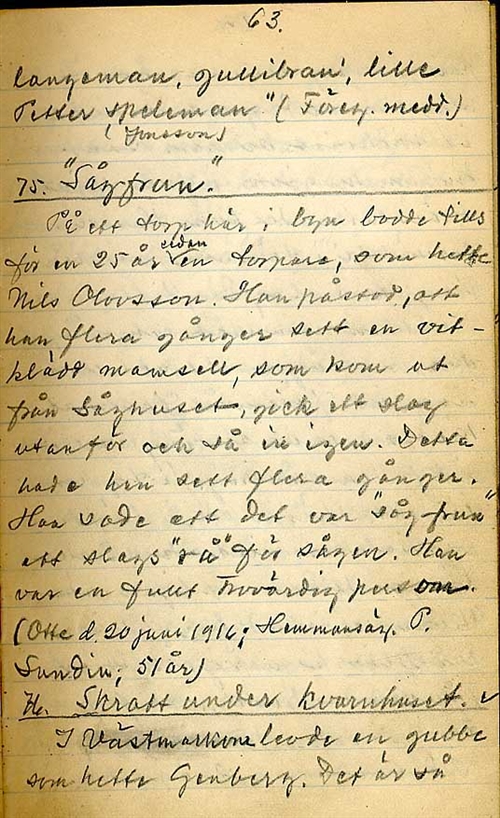 63.
langeman, gullibran', lille
Petter speleman" (Föreg. medd.)
(Jonsson)
75. "Sågfrun."
På ett torp här i byn bodde tills
för en 25 år sedan en torpare, som hette
Nils Olovsson. Han påstod, att
han flera gånger sett en vit-
klädd mamsell, som kom ut
från såghuset, gick ett slag
utanför och så in igen. Detta
hade han sett flera gånger.
Han sade att det var "sågfrun"
ett slags "rå" för sågen. Han
var en fullt trovärdig person.
(Otte d. 20 juni 1916; Hemmansäg. P.
Sundin; 51 år)
76. Skratt under kvarnhuset.
I Västmarkom levde en gubbe
som hette Genberg. Det är så